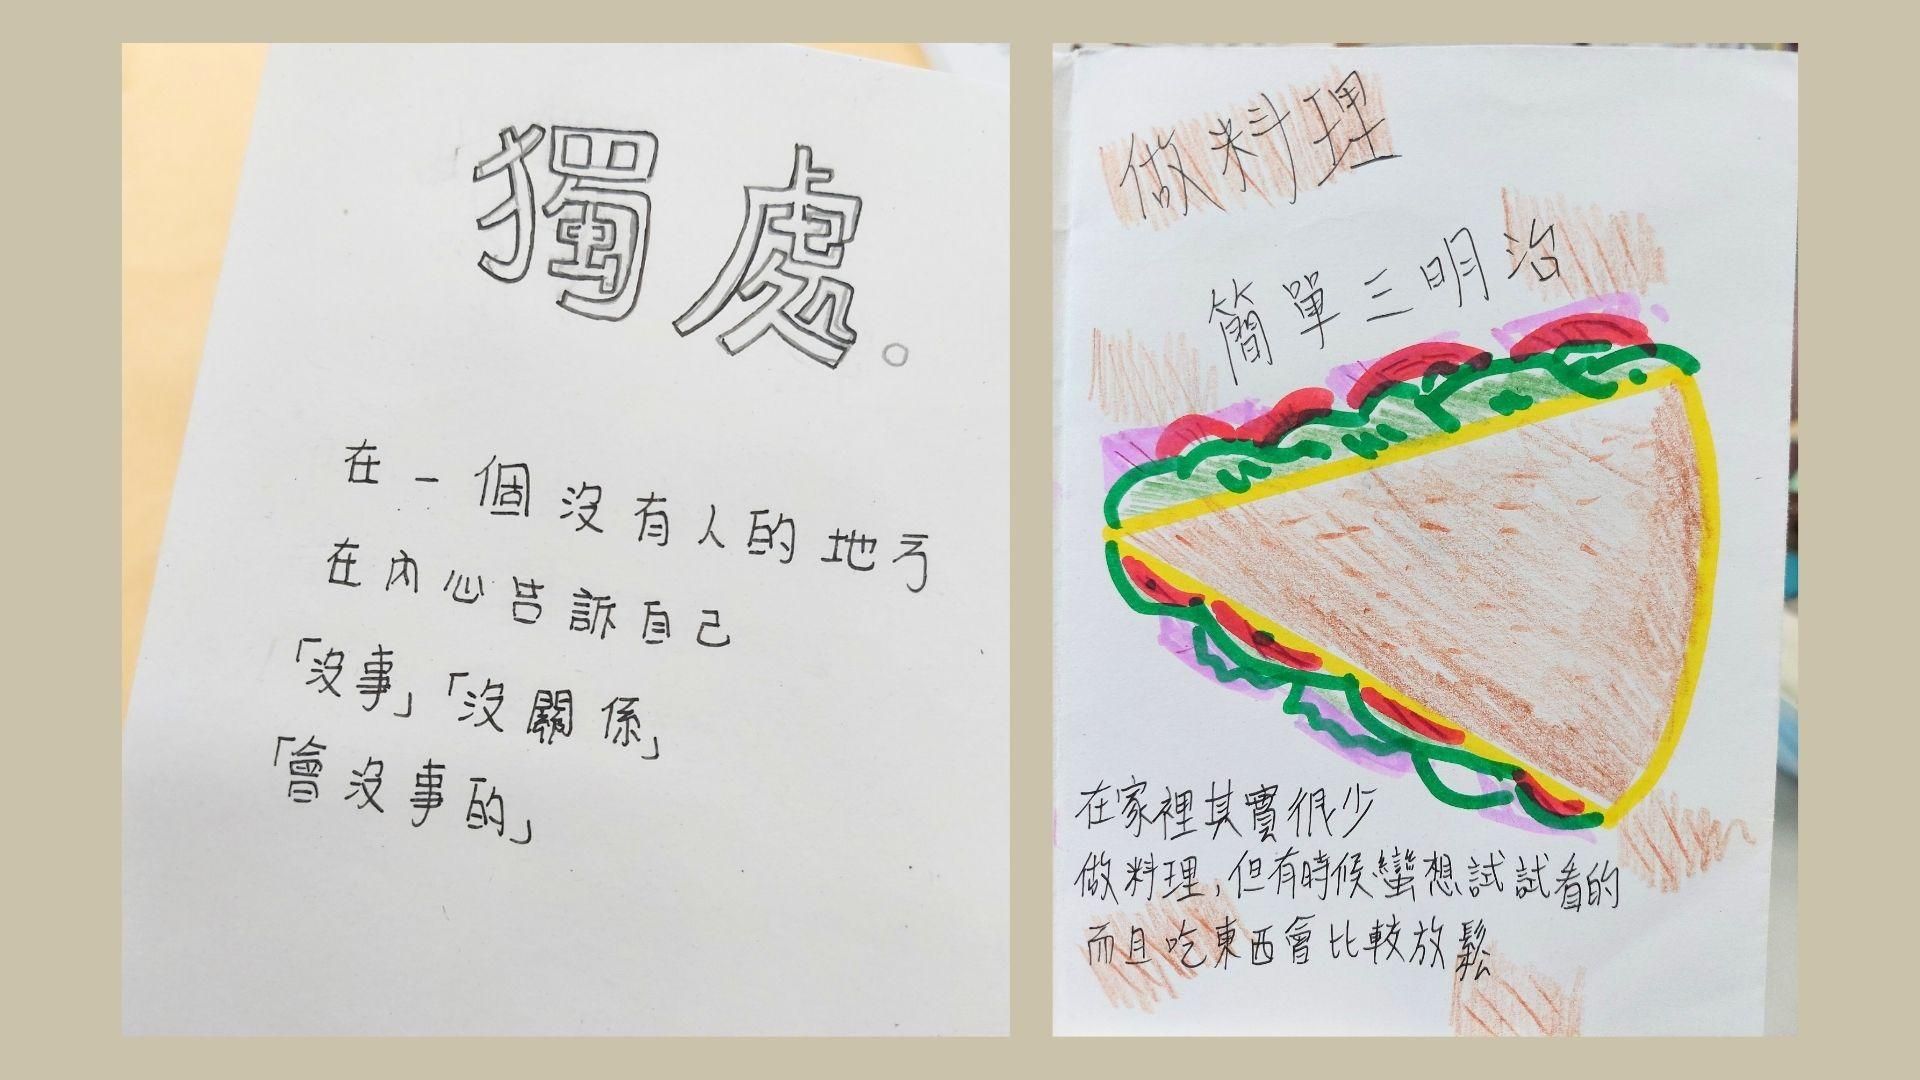 獨處。
在一個沒有人的地方
在內心告訴自己
「沒事」「沒關係」
「會沒事的」
做料理
簡單三明治
在家裡其實很少
做料理，但有時候蠻想試試看的
而且吃東西會比較放鬆